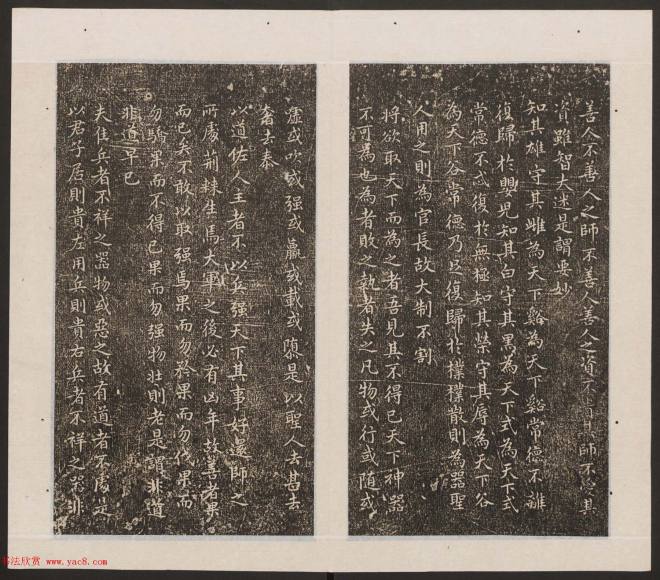 善人不善人之師不善人善人之資不貴其師不愛其
資雖智大迷是謂要妙
知其雄守其雌為天下谿為天下谿常德不離
復歸於嬰兒知其白守其黑為天下式為天下式
常德不忒復於無極知其榮守其辱為天下谷
為天下谷常德乃足復歸於樸樸散則為器聖
人用之則為官長故大制不割
將欲取天下而為之者吾見其不得已天下神器
不可為也為者敗之執者失之凡物或行或随或
或吹或强或羸或載或隳是以聖人去甚去
奢去泰
以道佐人主者不以兵强天下其事好還師之
所處荊棘生焉大軍之後必有凶年故善者果
而已矣不敢以取强焉果而勿矜果而勿伐果而
勿驕果而不得已果而勿强物壯則老是謂非道
非道早已
夫佳兵者不祥之器物或惡之故有道者不處是
以君子居則貴左用兵則貴右兵者不祥之器非
书法欣赏 www.yac8.com